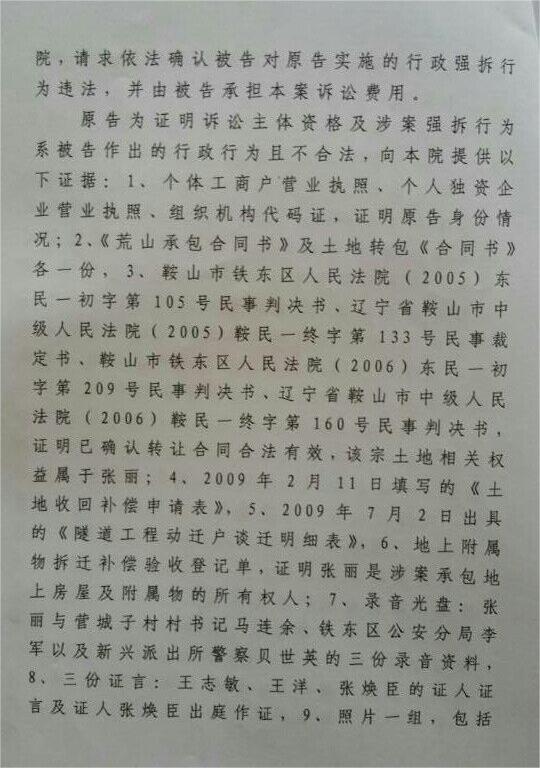 院,请求依法确认被告对原告实施的行政强拆行
为违法,并由被告承担本案诉讼费用。
原告为证明诉讼主体资格及涉案强拆行为
系被告作出的行政行为且不合法,向本院提供以
下证据:1、个体工商户营业执照、个人独资企
业营业执照、组织机构代码证,证明原告身份情
况;2、《荒山承包合同书》及土地转包《合同书》
各一份,3、鞍山市铁东区人民法院(2005)东
民一初字第105号民事判决书、辽宁省鞍山市中
级人民法院(2005)鞍民一终字第133号民事裁
定书、鞍山市铁东区人民法院(2006)东民一初
字第209号民事判决书、辽宁省鞍山市中级人民
法院(2006)鞍民一终字第160号民事判决书,
证明已确认转让合同合法有效,该宗土地相关权
益属于张丽;4、2009年2月11日填写的《土
地收回补偿申请表》,5、2009年7月2日出具
的《隧道工程动迁户谈迁明细表》,6、地上附属
物拆迁补偿验收登记单,证明张丽是涉案承包地
上房屋及附属物的所有权人;7、录音光盘:张
丽与营城子村村书记马连余、铁东区公安分局李
军以及新兴派出所警察贝世英的三份录音资料,
8、三份证言:王志敏、王洋、张焕臣的证人证
言及证人张焕臣出庭作证,9、照片一组,包括